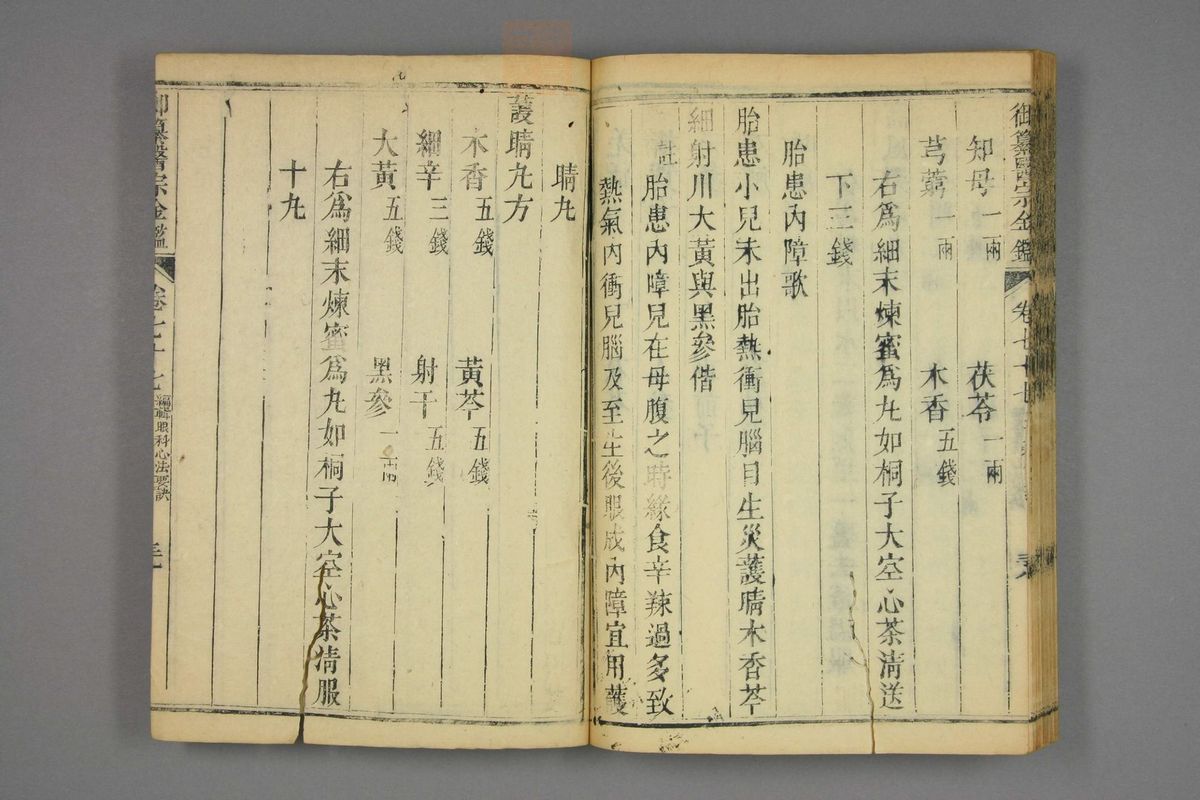 御纂醫宗金鑑 卷七十七
知母一兩 茯苓一兩
芎藭一兩 木香五錢
右爲細末煉蜜爲丸如桐子大空心茶淸送
下三錢
胎患內障歌
胎患小兒未出胎熱衝兒腦目生災護睛木香芩
細射川大黃與黑參偕
註胎患內障兒在母腹之時緣食辛辣過多致
熱氣內衝兒腦及至生後眼成內障宜用護
睛丸
護睛丸方
木香五錢 黃芩五錢
細辛三錢 射干五錢
大黃五錢 黑參一兩
右爲細末煉蜜爲丸如桐子大空心茶淸服
十丸
御纂醫宗金鑑 卷七十七 編輯眼科心法要訣